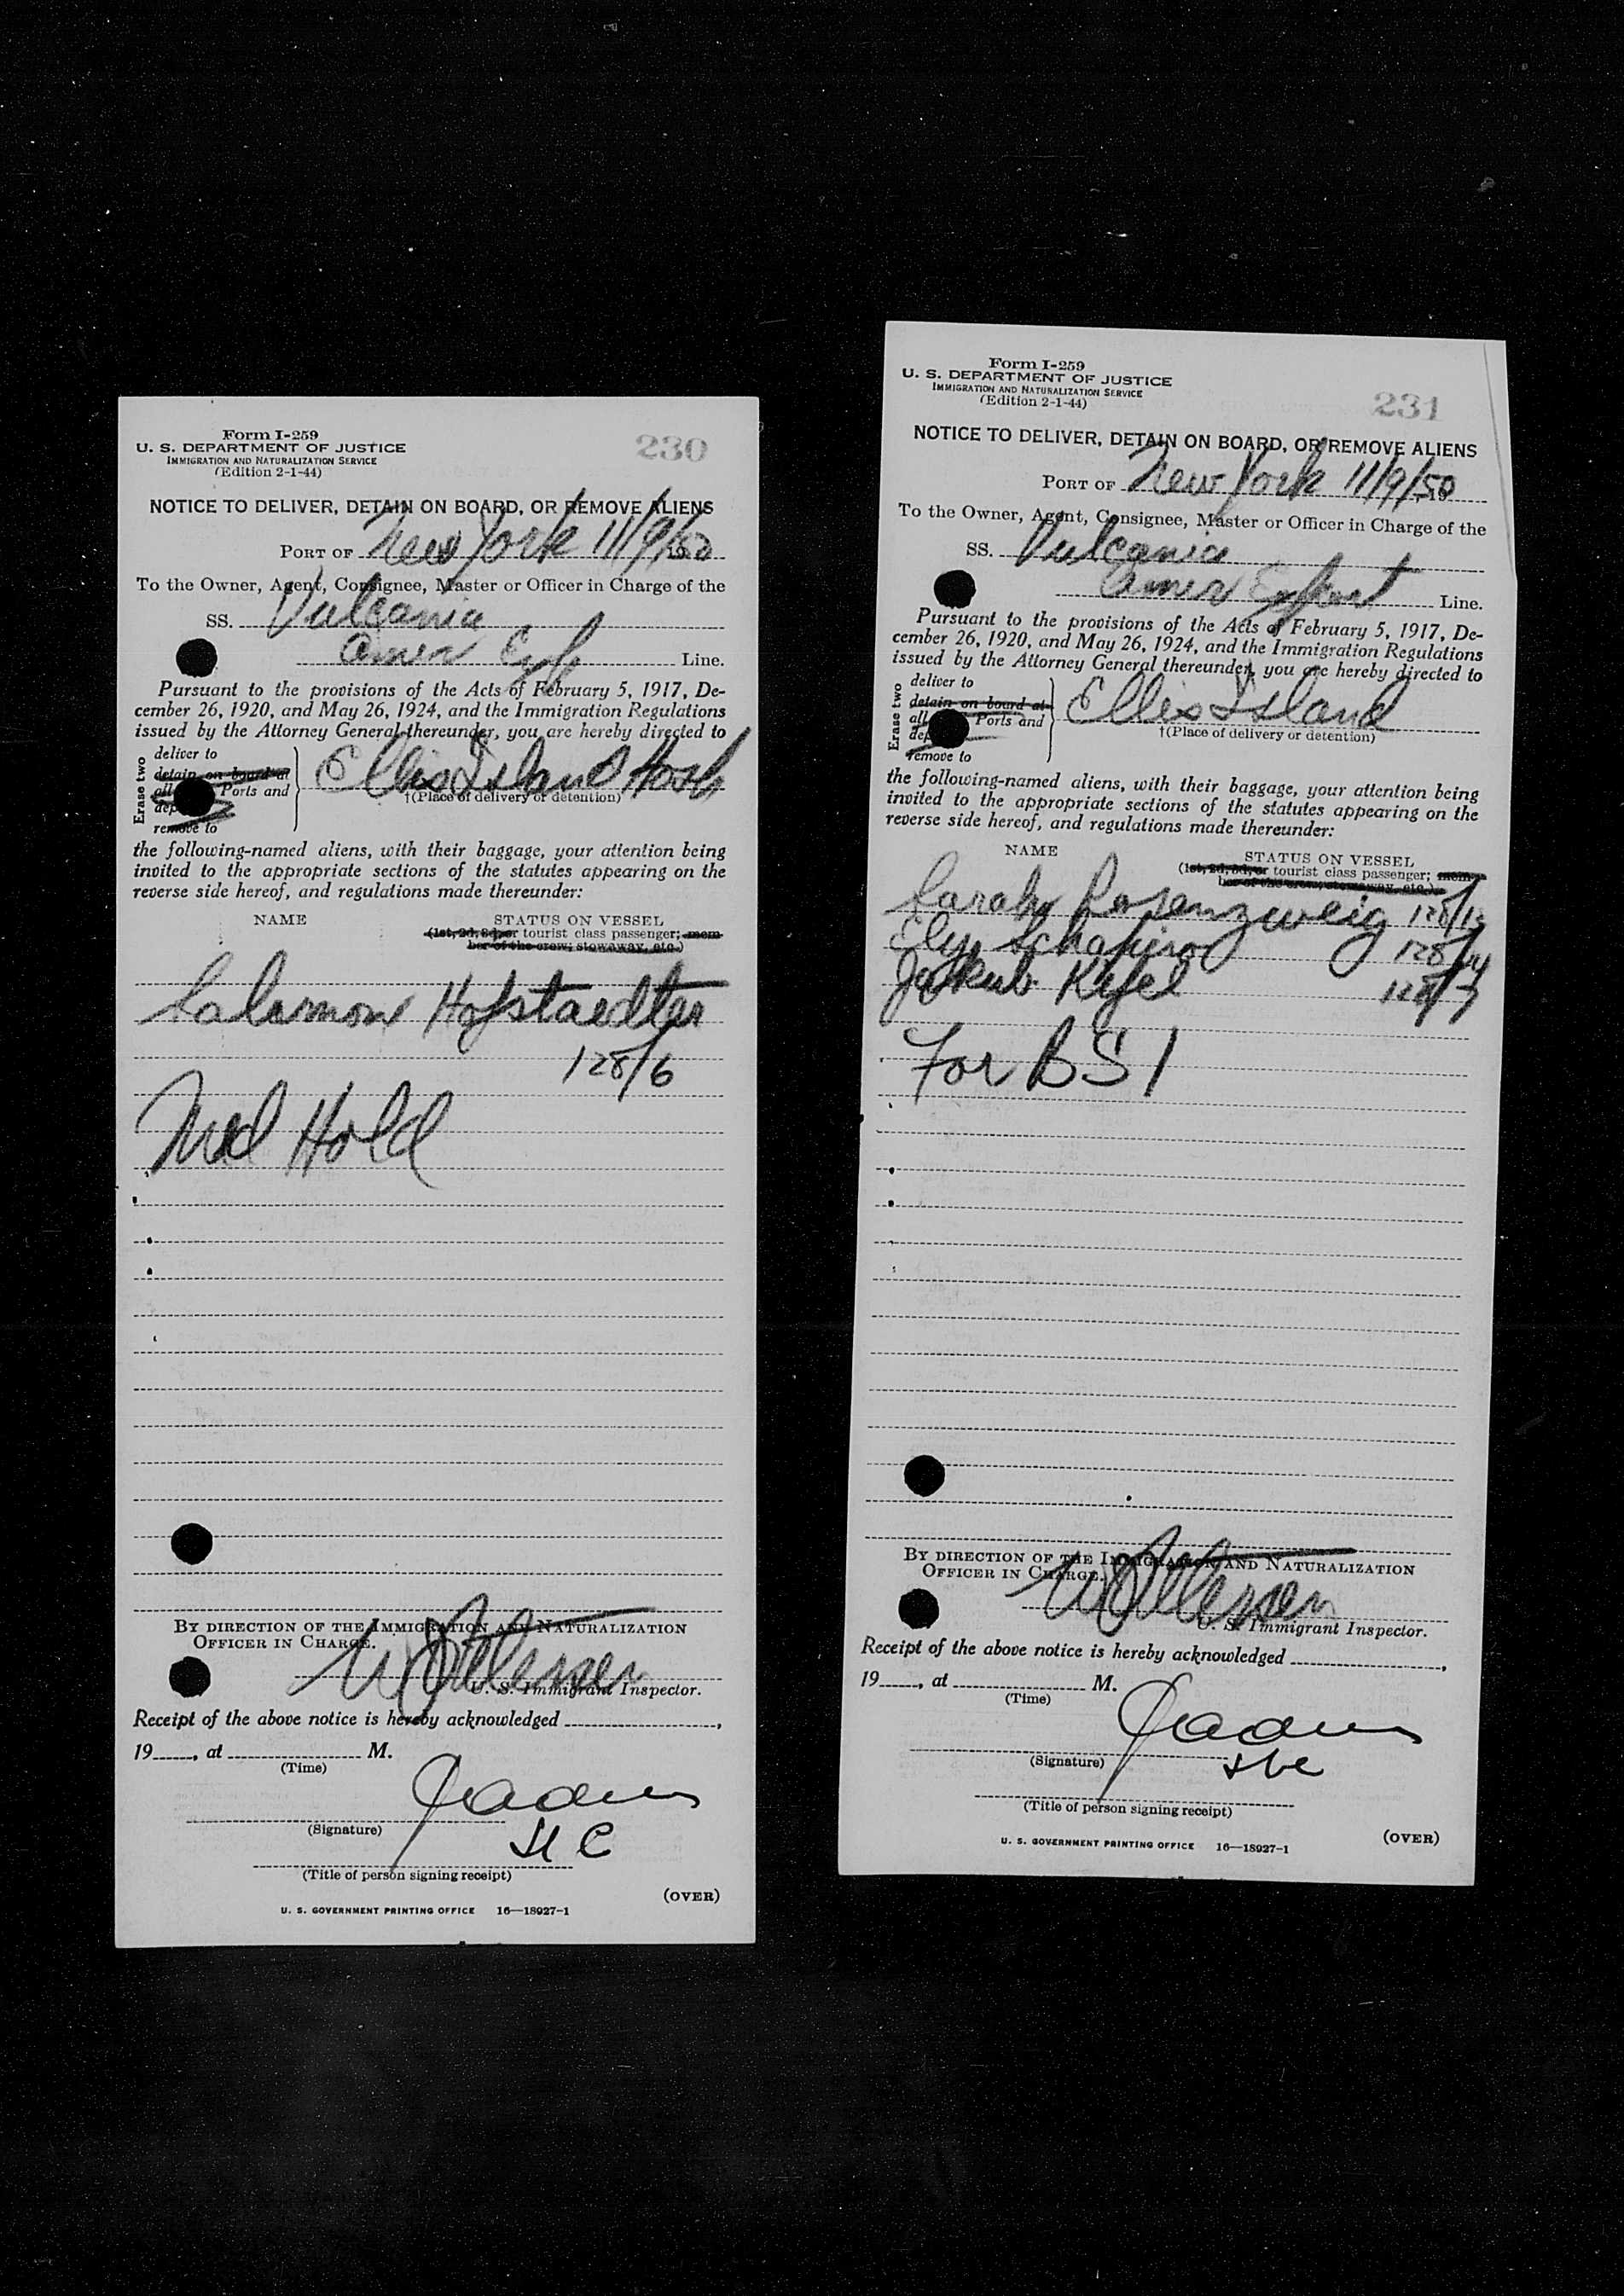 Form I-259
U. S. DEPARTMENT OF JUSTICE
IMMIGRATION AND NATURALIZATION SERVICE
(Edition 2-1-44)
230
NOTICE TO DELIVER, DETAIN ON BOARD, OR REMOVE ALIENS
PORT OF New York 11/9/50
To the Owner, Agent, Consignee, Master or Officer in Charge of the
SS. Vulcania
Amer Exp Line.
Pursuant to the provisions of the Acts of February 5, 1917, De-
cember 26, 1920, and May 26, 1924, and the Immigration Regulations
issued by the Attorney General thereunder, you are hereby directed to
Erase two
deliver to
detain on board at
all Ports and
dep
remove to
Ellis Island Hosp
†(Place of delivery or detention)
the following-named aliens, with their baggage, your attention being
invited to the appropriate sections of the statutes appearing on the
reverse side hereof, and regulations made thereunder:
NAME STATUS ON VESSEL
(1st, 2d, 3d, or tourist class passenger; mem-
ber of the crew; stowaway, etc.)
Salamon Hofstaedter
128/6
Med Hold
BY DIRECTION OF THE IMMIGRATION AND NATURALIZATION
OFFICER IN CHARGE.
U. S. Immigrant Inspector.
Receipt of the above notice is hereby acknowledged ,
19 , at M.
(Time)
(Signature)
(Title of person signing receipt)
(OVER)
U. S. GOVERNMENT PRINTING OFFICE 16—18927-1
Form I-259
U. S. DEPARTMENT OF JUSTICE
IMMIGRATION AND NATURALIZATION SERVICE
(Edition 2-1-44)
231
NOTICE TO DELIVER, DETAIN ON BOARD, OR REMOVE ALIENS
PORT OF New York 11/9/50
To the Owner, Agent, Consignee, Master or Officer in Charge of the
SS. Vulcania
Amer Export Line.
Pursuant to the provisions of the Acts of February 5, 1917, De-
cember 26, 1920, and May 26, 1924, and the Immigration Regulations
issued by the Attorney General thereunder, you are hereby directed to
Erase two
deliver to
detain on board at
all Ports and
dep
remove to
Ellis Island
†(Place of delivery or detention)
the following-named aliens, with their baggage, your attention being
invited to the appropriate sections of the statutes appearing on the
reverse side hereof, and regulations made thereunder:
NAME STATUS ON VESSEL
(1st, 2d, 3d, or tourist class passenger; mem-
ber of the crew; stowaway, etc.)
Sarah Rosenzweig
Schapiro 128/14
Jakub 128/7
For BSI
BY DIRECTION OF THE IMMIGRATION AND NATURALIZATION
OFFICER IN CHARGE.
U. S. Immigrant Inspector.
Receipt of the above notice is hereby acknowledged ,
19 , at M.
(Time)
(Signature)
(Title of person signing receipt)
U. S. GOVERNMENT PRINTING OFFICE 16—18927-1
(OVER)